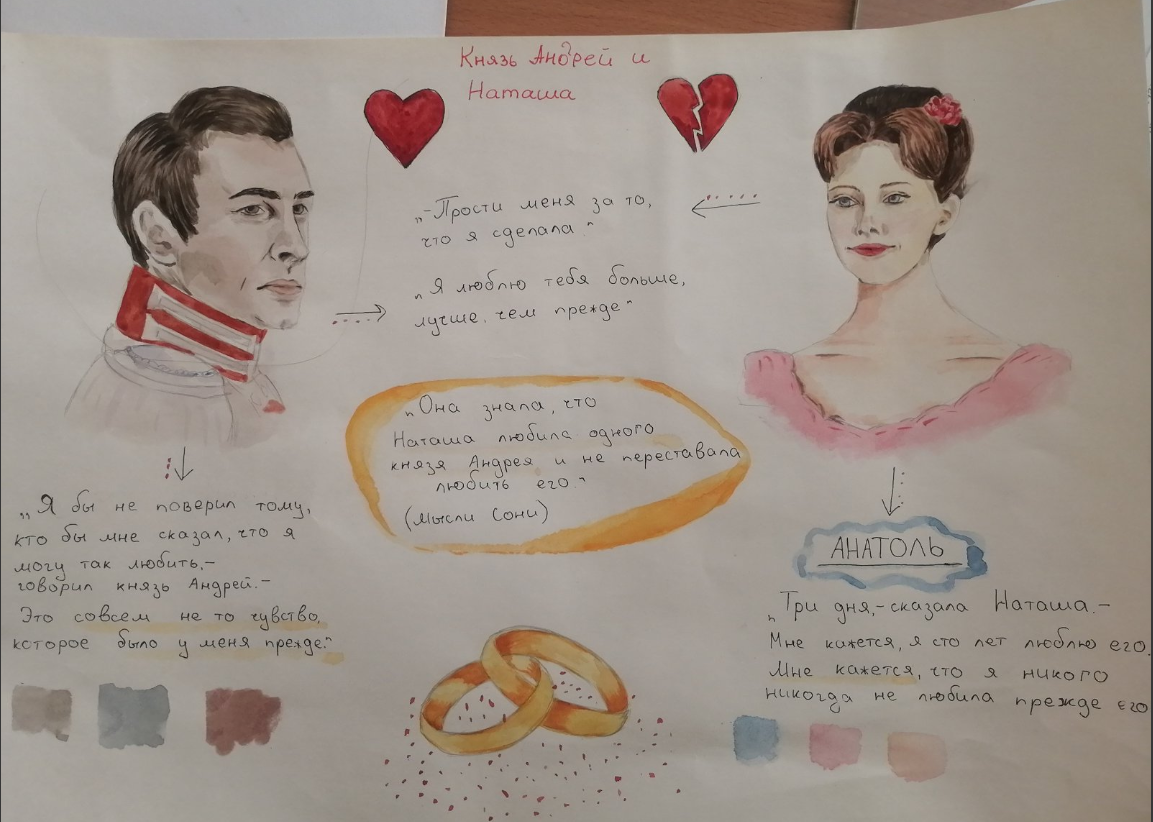 Князь Андрей и
Наташа
„-Прости меня за то,
что я сделала."
„Я люблю тебя больше,
лучше, чем прежде"
„Она знала, что
Наташа любила одного
князя Андрея и не переставала
любить его."
(мысли Сони)
„Я бы не поверил тому,
кто бы мне сказал, что я
могу так любить,-
говорил князь Андрей.-
Это совсем не то чувство,
которое было у меня прежде."
АНАТОЛЬ
„Три дня,-сказала Наташа.-
Мне кажется, я сто лет люблю его.
Мне кажется, что я никого
никогда не любила прежде его